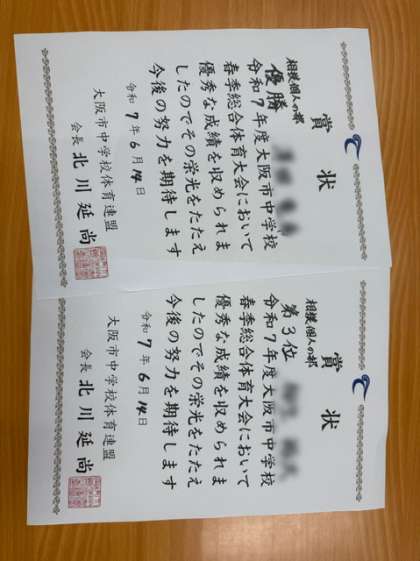 賞状
相撲個人の部
優勝
令和7年度大阪市中学校
春季総合体育大会において
優秀な成績を収められま
したのでその栄光をたたえ
今後の努力を期待します
令和7年6月14日
大阪市中学校体育連盟
会長 北川延尚
賞状
相撲個人の部
第3位
令和7年度大阪市中学校
春季総合体育大会において
優秀な成績を収められま
したのでその栄光をたたえ
今後の努力を期待します
令和7年6月14日
大阪市中学校体育連盟
会長 北川延尚